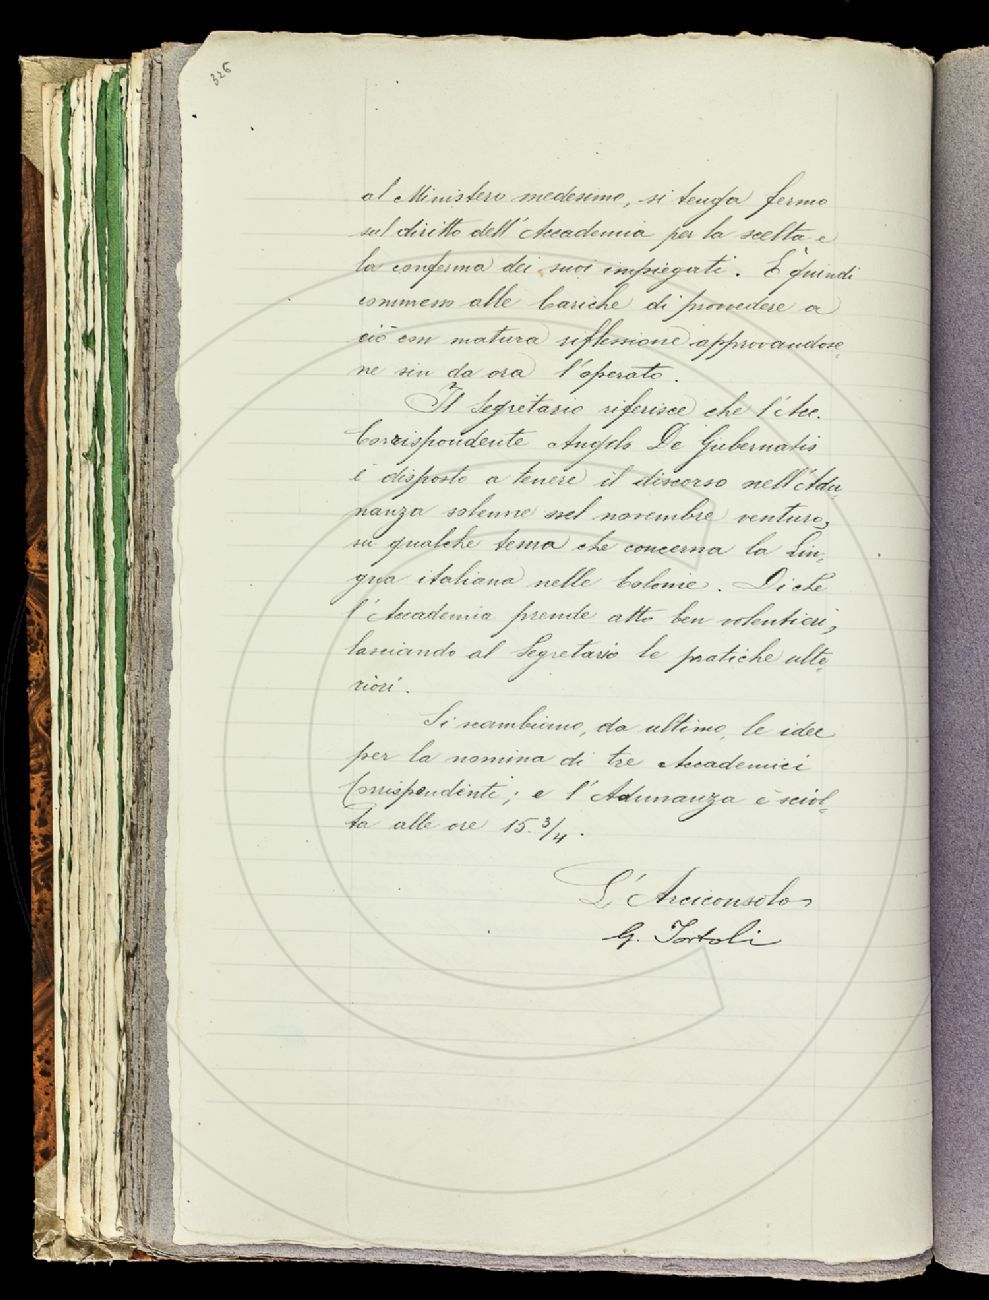 326
al Ministero medesimo, si tenga fermo
sul diritto dell'Accademia per la scelta e
la conferma dei suoi impiegati. È quindi
commesso alle Cariche di provvedere a
ciò con matura riflessione approvandose-
ne sin da ora l'operato.
Il Segretario riferisce che l'Acc.
Corrispondente Angelo De Gubernatis
è disposto a tenere il discorso nell'Adu-
nanza solenne nel novembre venturo,
su qualche tema che concerna la Lin-
gua italiana nelle Colonie. Di che
l'Accademia prende atto ben volentieri,
lasciando al Segretario le pratiche ulte-
riori.
Si scambiano, da ultimo, le idee
per la nomina di tre Accademici
Corrispondenti; e l'Adunanza è sciol-
ta alle ore 15.3/4.
L'Arciconsolo
G. Tortoli